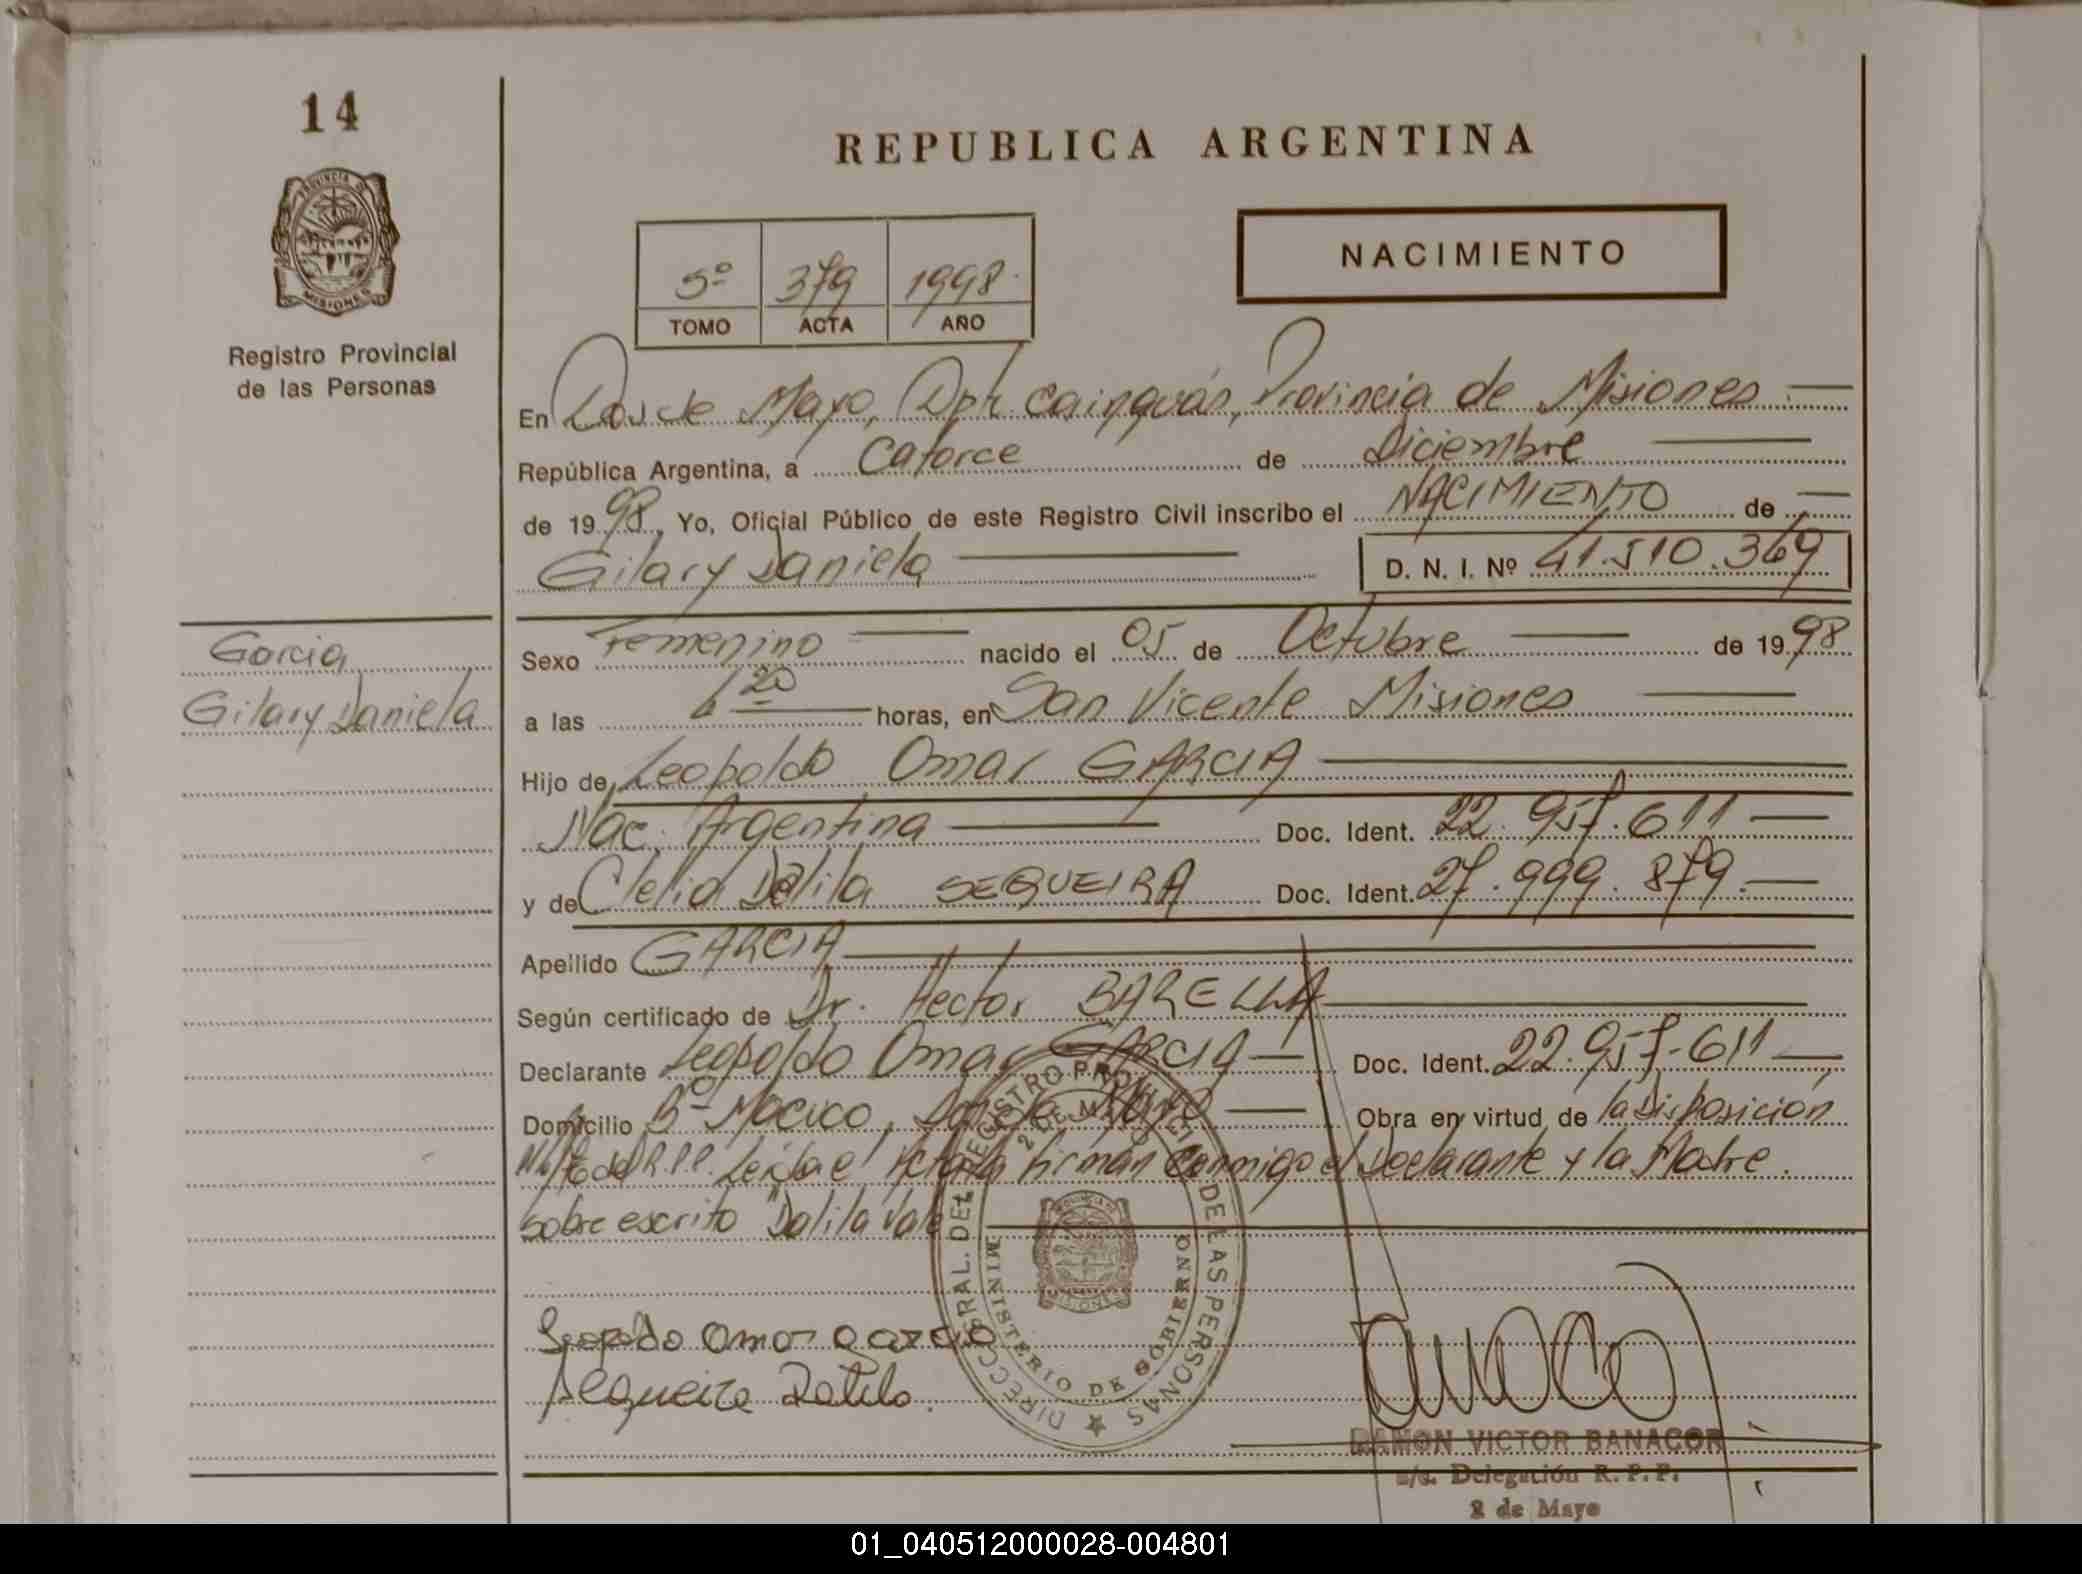 14
PROVINCIA DE
MISIONES
Registro Provincial
de las Personas
REPUBLICA ARGENTINA
NACIMIENTO
5º 379 1998
TOMO ACTA AÑO
En Dos de Mayo, Dpto Cainguás, Provincia de Misiones
República Argentina, a Catorce de Diciembre
de 1998, Yo, Oficial Público de este Registro Civil inscribo el NACIMIENTO de
Gilary Daniela D. N. I. Nº 41.510.369
Garcia
Gilary Daniela
Sexo Femenino nacido el 05 de Octubre de 1998
a las 6 20 horas, en San Vicente Misiones
Hijo de Leopoldo Omar GARCIA
Nac. Argentina Doc. Ident. 22.957.611
y de Clelia Dalila SEQUEIRA Doc. Ident. 27.999.879
Apellido GARCIA
Según certificado de Dr. Hector BARELLA
Declarante Leopoldo Omar GARCIA Doc. Ident. 22.957-611
Domicilio Bº Macuco, Dos de Mayo Obra en virtud de la Disposición
Leida el Acta la firman conmigo el Declarante y la Madre.
Sobre escrito "Dalila Vale
DIRECC. GRAL. DEL REGISTRO PROVINCIAL DE LAS PERSONAS
2 DE MAYO
MINISTERIO DE GOBIERNO
MISIONES
Leopoldo Omar Garcia
Sequeira Dalila.
RAMON VICTOR BANACOR
a/c. Delegación R. P. P.
2 de Mayo
01_040512000028-004801